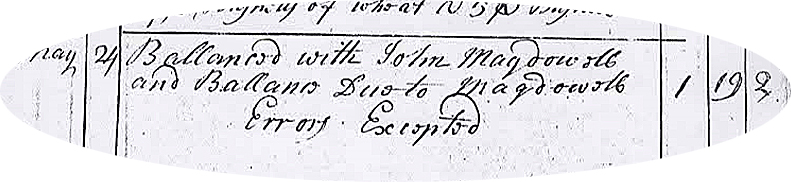 of wheat
May 24 Ballanced with John Magdowell
and Ballance Due to Magdowell 1 19 2
Errors Excepted